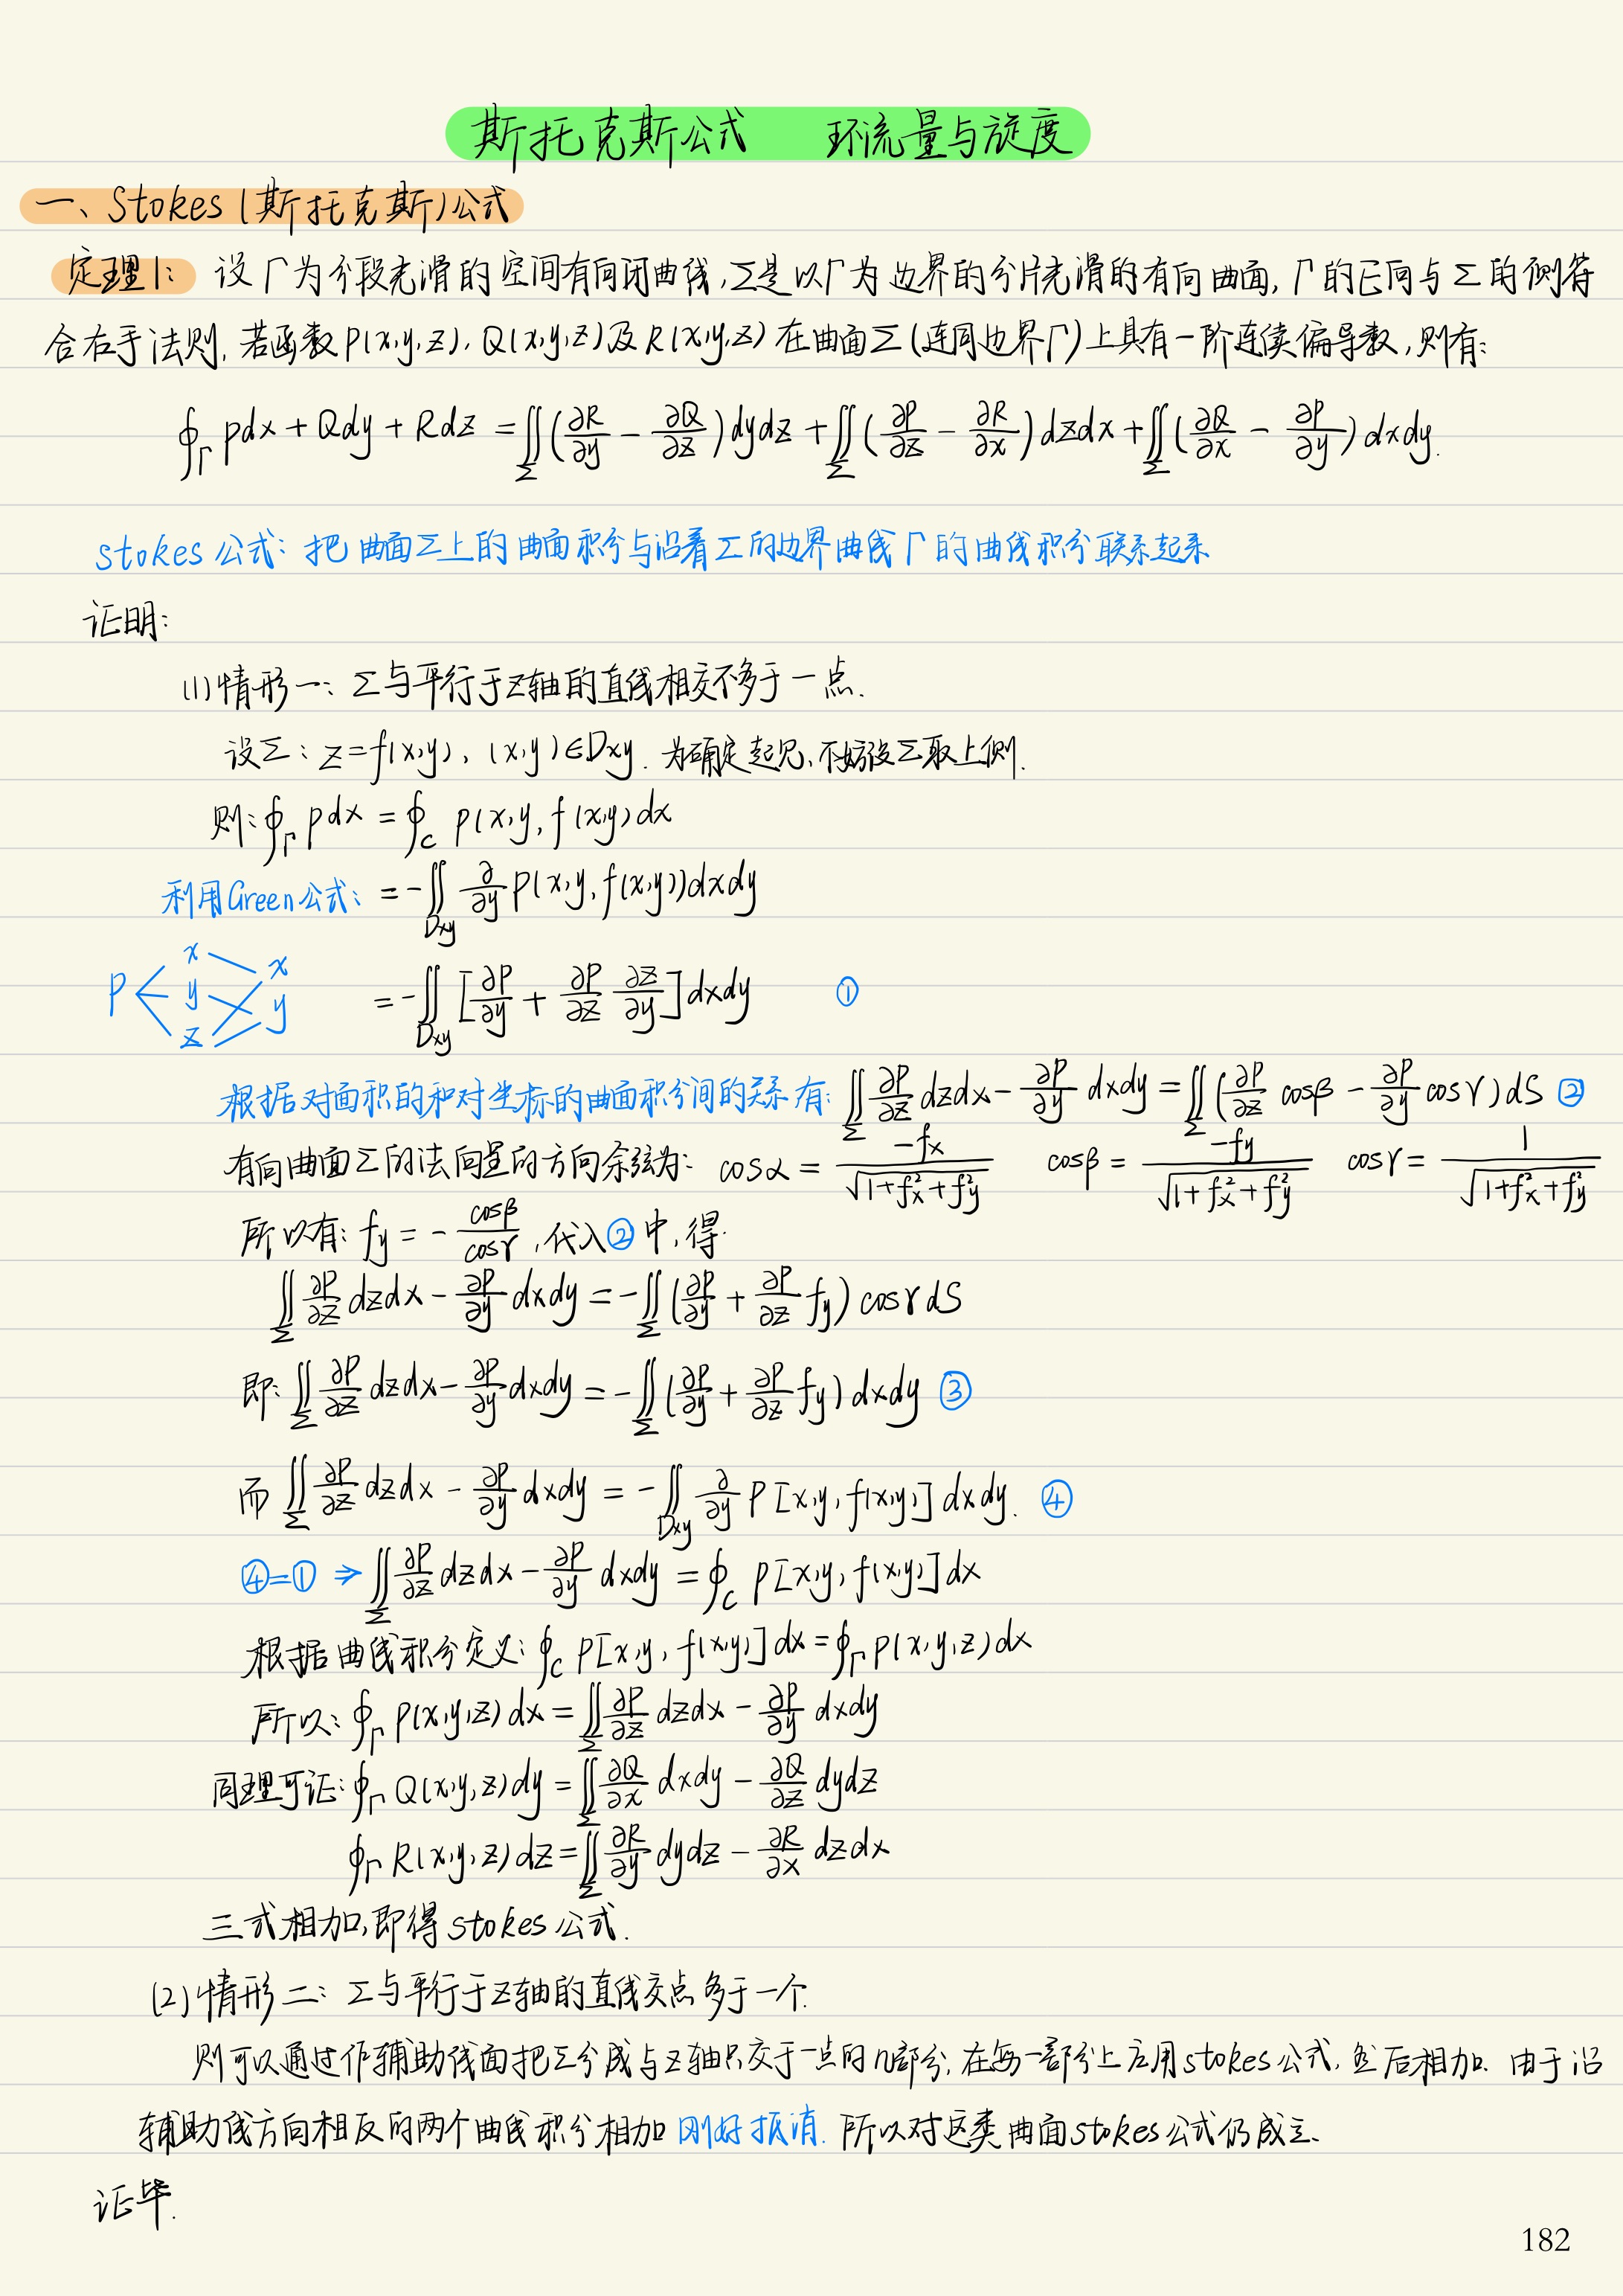 斯托克斯公式 环流量与旋度
一、Stokes(斯托克斯)公式
定理1: 设Γ为分段光滑的空间有向闭曲线,Σ是以Γ为边界的分片光滑的有向曲面,Γ的正向与Σ的侧符
合右手法则,若函数P(x,y,z),Q(x,y,z)及R(x,y,z)在曲面Σ(连同边界Γ)上具有一阶连续偏导数,则有:
∮_Γ Pdx + Qdy + Rdz = ∬_Σ (∂R/∂y − ∂Q/∂z) dydz + ∬_Σ (∂P/∂z − ∂R/∂x) dzdx + ∬_Σ (∂Q/∂x − ∂P/∂y) dxdy.
stokes公式: 把曲面Σ上的曲面积分与沿着Σ的边界曲线Γ的曲线积分联系起来
证明:
(1)情形一: Σ与平行于z轴的直线相交不多于一点.
设Σ: z=f(x,y), (x,y)∈Dxy. 为确定起见,不妨设Σ取上侧.
则: ∮_Γ Pdx = ∮_C P(x,y,f(x,y)dx
利用Green公式: = −∬_Dxy ∂/∂y P(x,y,f(x,y))dxdy
P x y z x y = −∬_Dxy [∂P/∂y + ∂P/∂z ∂z/∂y] dxdy ①
根据对面积的和对坐标的曲面积分间的关系有: ∬_Σ ∂P/∂z dzdx − ∂P/∂y dxdy = ∬_Σ (∂P/∂z cosβ − ∂P/∂y cosγ) dS ②
有向曲面Σ的法向量的方向余弦为: cosα = −fx/√(1+fx²+fy²) cosβ = −fy/√(1+fx²+fy²) cosγ = 1/√(1+fx²+fy²)
所以有: fy = − cosβ/cosγ ,代入②中,得.
∬_Σ ∂P/∂z dzdx − ∂P/∂y dxdy = −∬_Σ (∂P/∂y + ∂P/∂z fy) cosγ dS
即: ∬_Σ ∂P/∂z dzdx − ∂P/∂y dxdy = −∬_Σ (∂P/∂y + ∂P/∂z fy) dxdy ③
而 ∬_Σ ∂P/∂z dzdx − ∂P/∂y dxdy = −∬_Dxy ∂/∂y P[x,y,f(x,y)] dxdy. ④
④=① ⇒ ∬_Σ ∂P/∂z dzdx − ∂P/∂y dxdy = ∮_C P[x,y,f(x,y)] dx
根据曲线积分定义: ∮_C P[x,y,f(x,y)] dx = ∮_Γ P(x,y,z) dx
所以: ∮_Γ P(x,y,z) dx = ∬_Σ ∂P/∂z dzdx − ∂P/∂y dxdy
同理可证: ∮_Γ Q(x,y,z) dy = ∬_Σ ∂Q/∂x dxdy − ∂Q/∂z dydz
∮_Γ R(x,y,z) dz = ∬_Σ ∂R/∂y dydz − ∂R/∂x dzdx
三式相加,即得stokes公式.
(2)情形二: Σ与平行于z轴的直线交点多于一个.
则可以通过作辅助线面把Σ分成与z轴只交于一点的n部分,在每一部分上应用stokes公式,然后相加. 由于沿
辅助线方向相反的两个曲线积分相加刚好抵消. 所以对这类曲面stokes公式仍成立、
证毕.
182